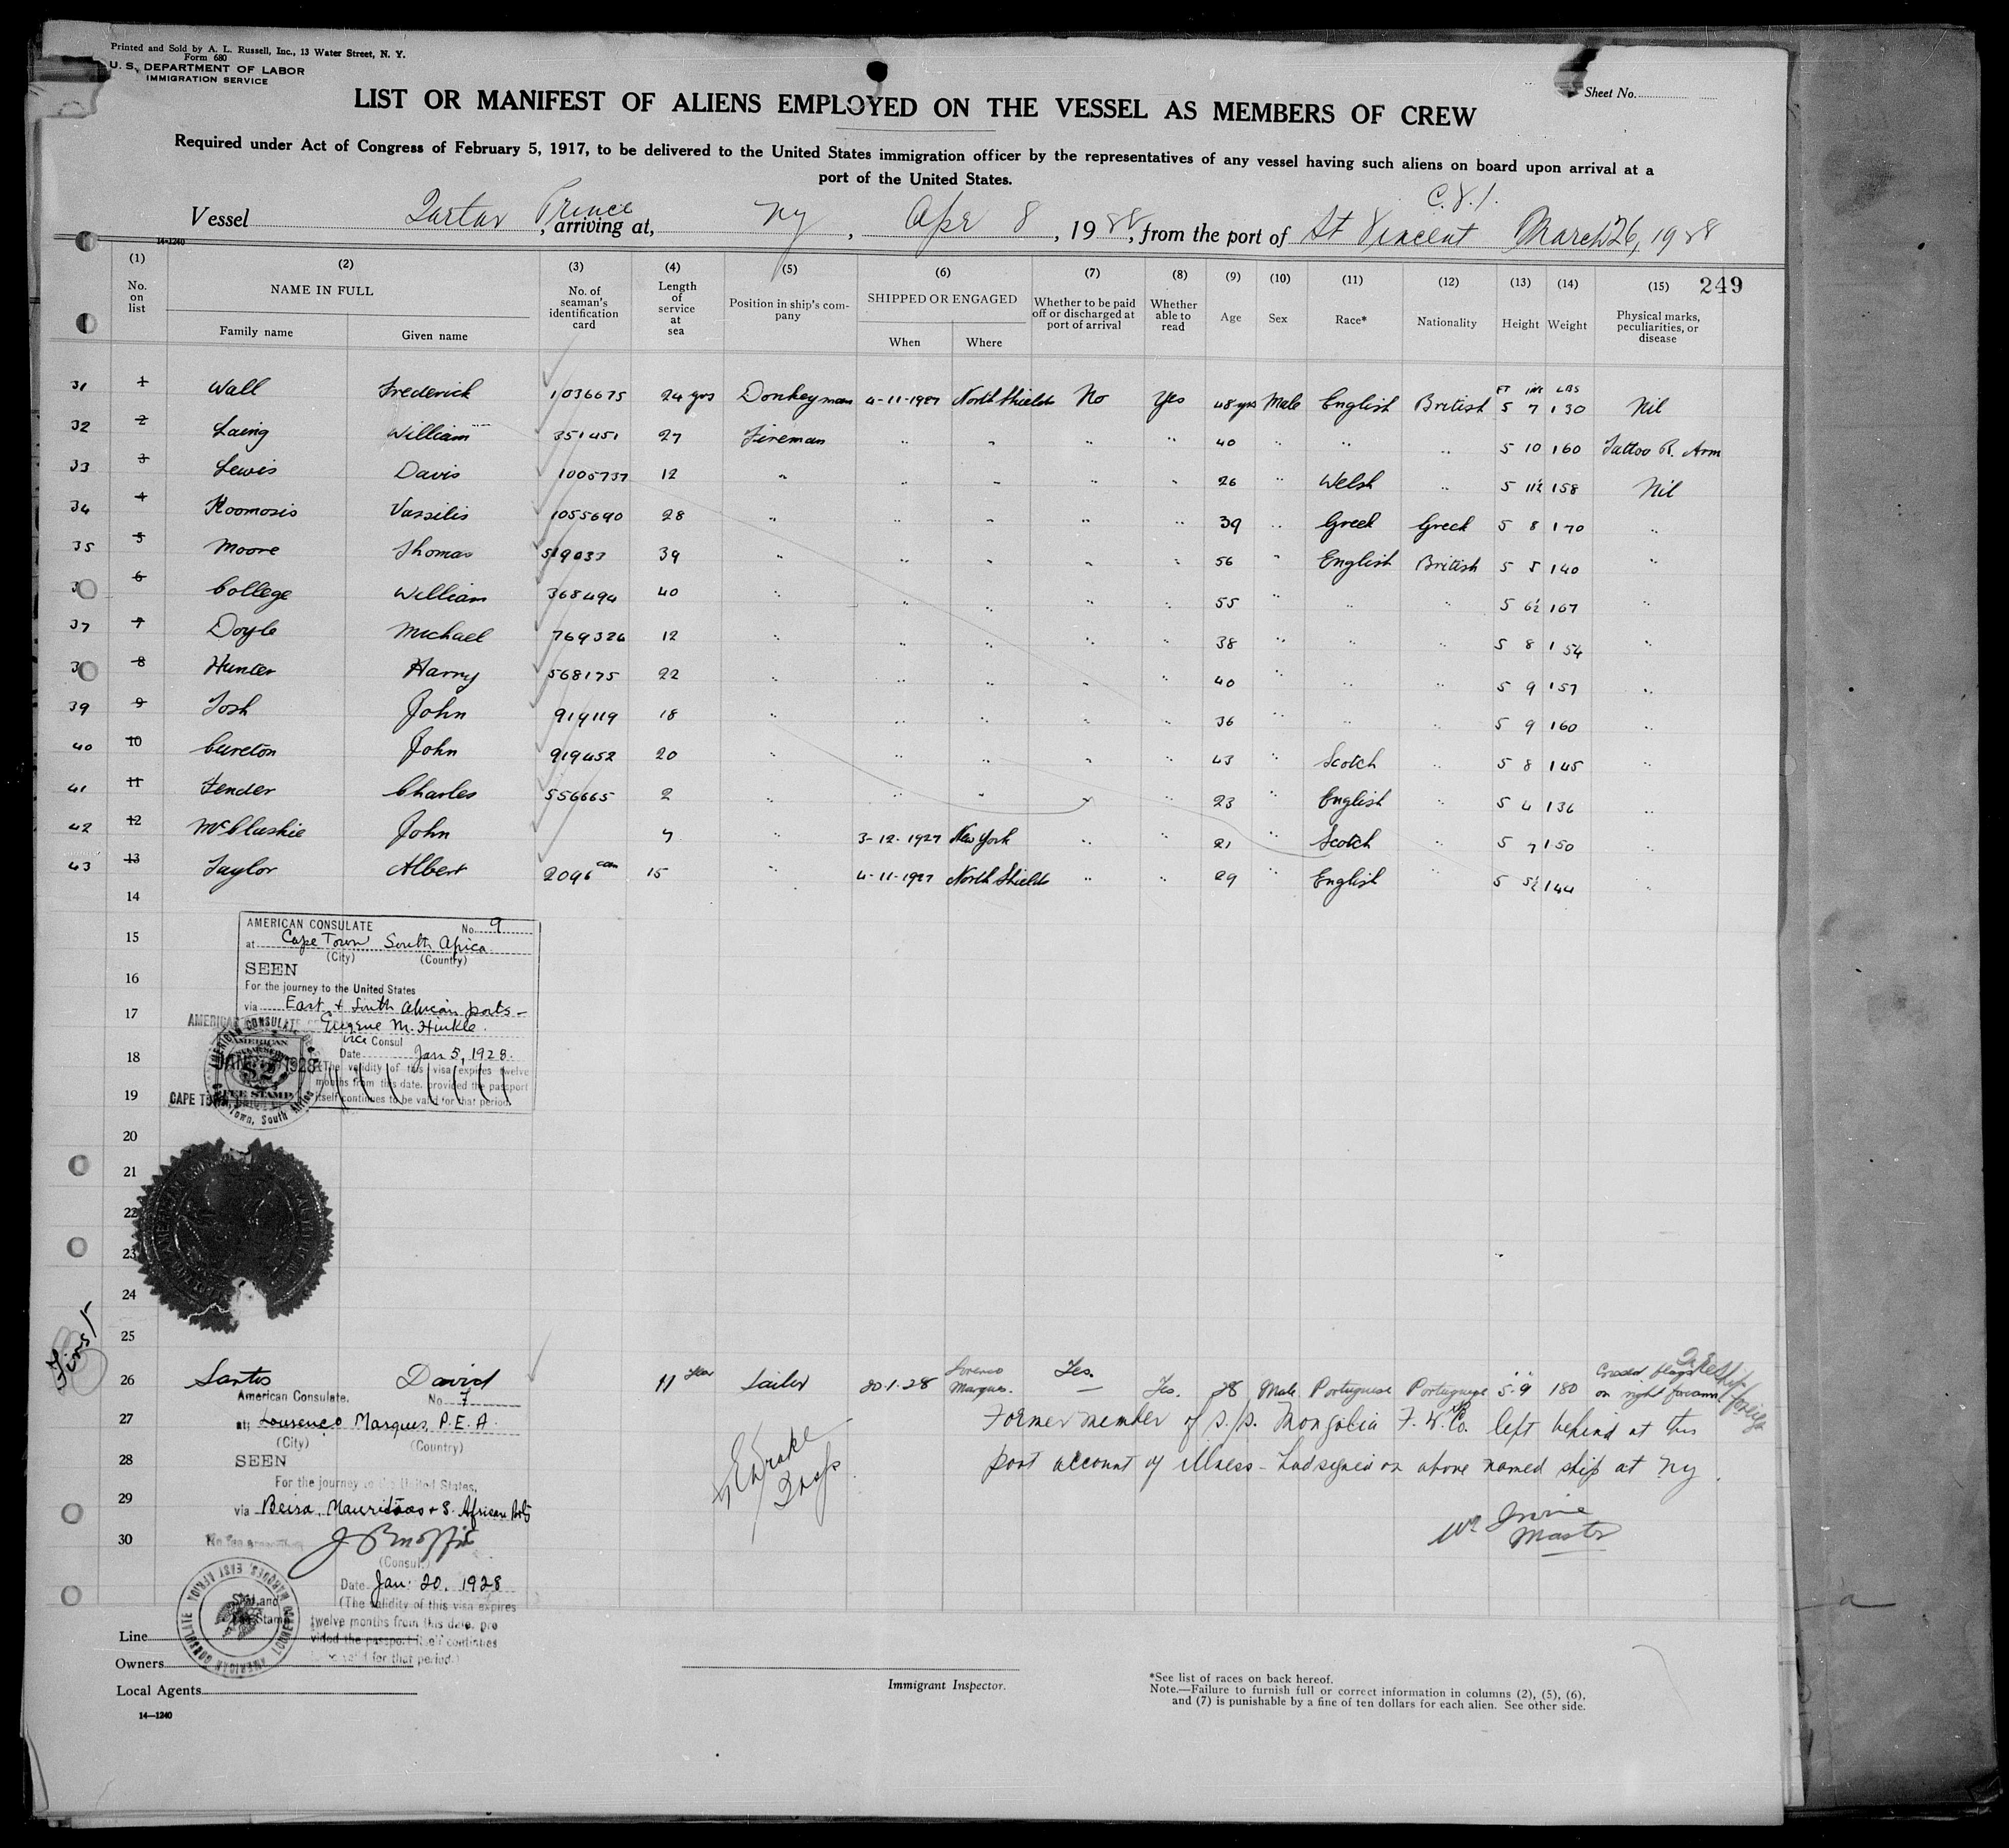 Printed and Sold by A. L. Russell, Inc., 13 Water Street, N. Y.
Form 680
U. S. DEPARTMENT OF LABOR
IMMIGRATION SERVICE
Sheet No.
LIST OR MANIFEST OF ALIENS EMPLOYED ON THE VESSEL AS MEMBERS OF CREW
Required under Act of Congress of February 5, 1917, to be delivered to the United States immigration officer by the representatives of any vessel having such aliens on board upon arrival at a
port of the United States.
C.V.I.
Vessel Tartar Prince, arriving at, NY, Apr 8, 1928, from the port of St Vincent March 26, 1928
14-1240
249
(1) (2) (3) (4) (5) (6) (7) (8) (9) (10) (11) (12) (13) (14) (15)
No. on list NAME IN FULL Family name Given name No. of seaman's identification card Length of service at sea Position in ship's company SHIPPED OR ENGAGED When Where Whether to be paid off or discharged at port of arrival Whether able to read Age Sex Race* Nationality Height Weight Physical marks, peculiarities, or disease
FT INS LBS
31 1 Wall Frederick 1036675 24 yrs Donkeyman 4-11-1927 North Shields No Yes 48 yrs Male English British 5 7 130 Nil
32 2 Laing William 351451 27 Fireman " " " " 40 " " " 5 10 160 Tattoo R. Arm
33 3 Lewis Davis 1005737 12 " " " " " 26 " Welsh " 5 11½ 158 Nil
34 4 Koomosis Vassilis 1055690 28 " " " " " 39 " Greek Greek 5 8 170 "
35 5 Moore Thomas 519033 39 " " " " " 56 " English British 5 5 140 "
3 6 College William 368494 40 " " " " " 55 " " " 5 6½ 167 "
37 7 Doyle Michael 769326 12 " " " " " 38 " " " 5 8 154 "
3 8 Hunter Harry 568175 22 " " " " " 40 " " " 5 9 157 "
39 9 Tosh John 919119 18 " " " " " 36 " " " 5 9 160 "
40 10 Cureton John 919452 20 " " " " " 43 " Scotch " 5 8 145 "
41 11 Fender Charles 556665 2 " " " " " 23 " English " 5 4 136 "
42 12 McCluskie John 4 " 3-12-1927 New York " " 21 " Scotch " 5 7 150 "
43 13 Taylor Albert 2096 15 " 4-11-1927 North Shields " " 29 " English " 5 5½ 144 "
14
15
16
17
18
19
20
21
22
23
24
25
AMERICAN CONSULATE No. 9
at Cape Town South Africa
(City) (Country)
SEEN
For the journey to the United States
via East & South African ports-
Eugene M. Hinkle.
Vice Consul
Date Jan 5, 1928.
(The validity of this visa expires twelve
months from this date, provided the passport
itself continues to be valid for that period.
First
26 Santos David 11 Sailor 20.1.28 Lorenco Marques. Yes. Yes. 28 Male Portuguese Portuguese 5.9 180 Crossed flags on right forearm.
Former member of s/s. Mongolia F. W. Co. left behind at this
port account of illness - had signed on above named ship at NY.
Wm Irvine
Master
27
28
29
30
American Consulate. No. 7
at Lourenco Marques, P.E.A.
(City) (Country)
SEEN
For the journey to the United States,
via Beira, Mauritius & S. African Ports
(Consul.)
Date Jan. 20, 1928
(The validity of this visa expires
twelve months from this date, pro
vided the passport itself continues
for that period.)
Line
Owners
Local Agents
14—1240
Immigrant Inspector.
*See list of races on back hereof.
Note.—Failure to furnish full or correct information in columns (2), (5), (6),
and (7) is punishable by a fine of ten dollars for each alien. See other side.